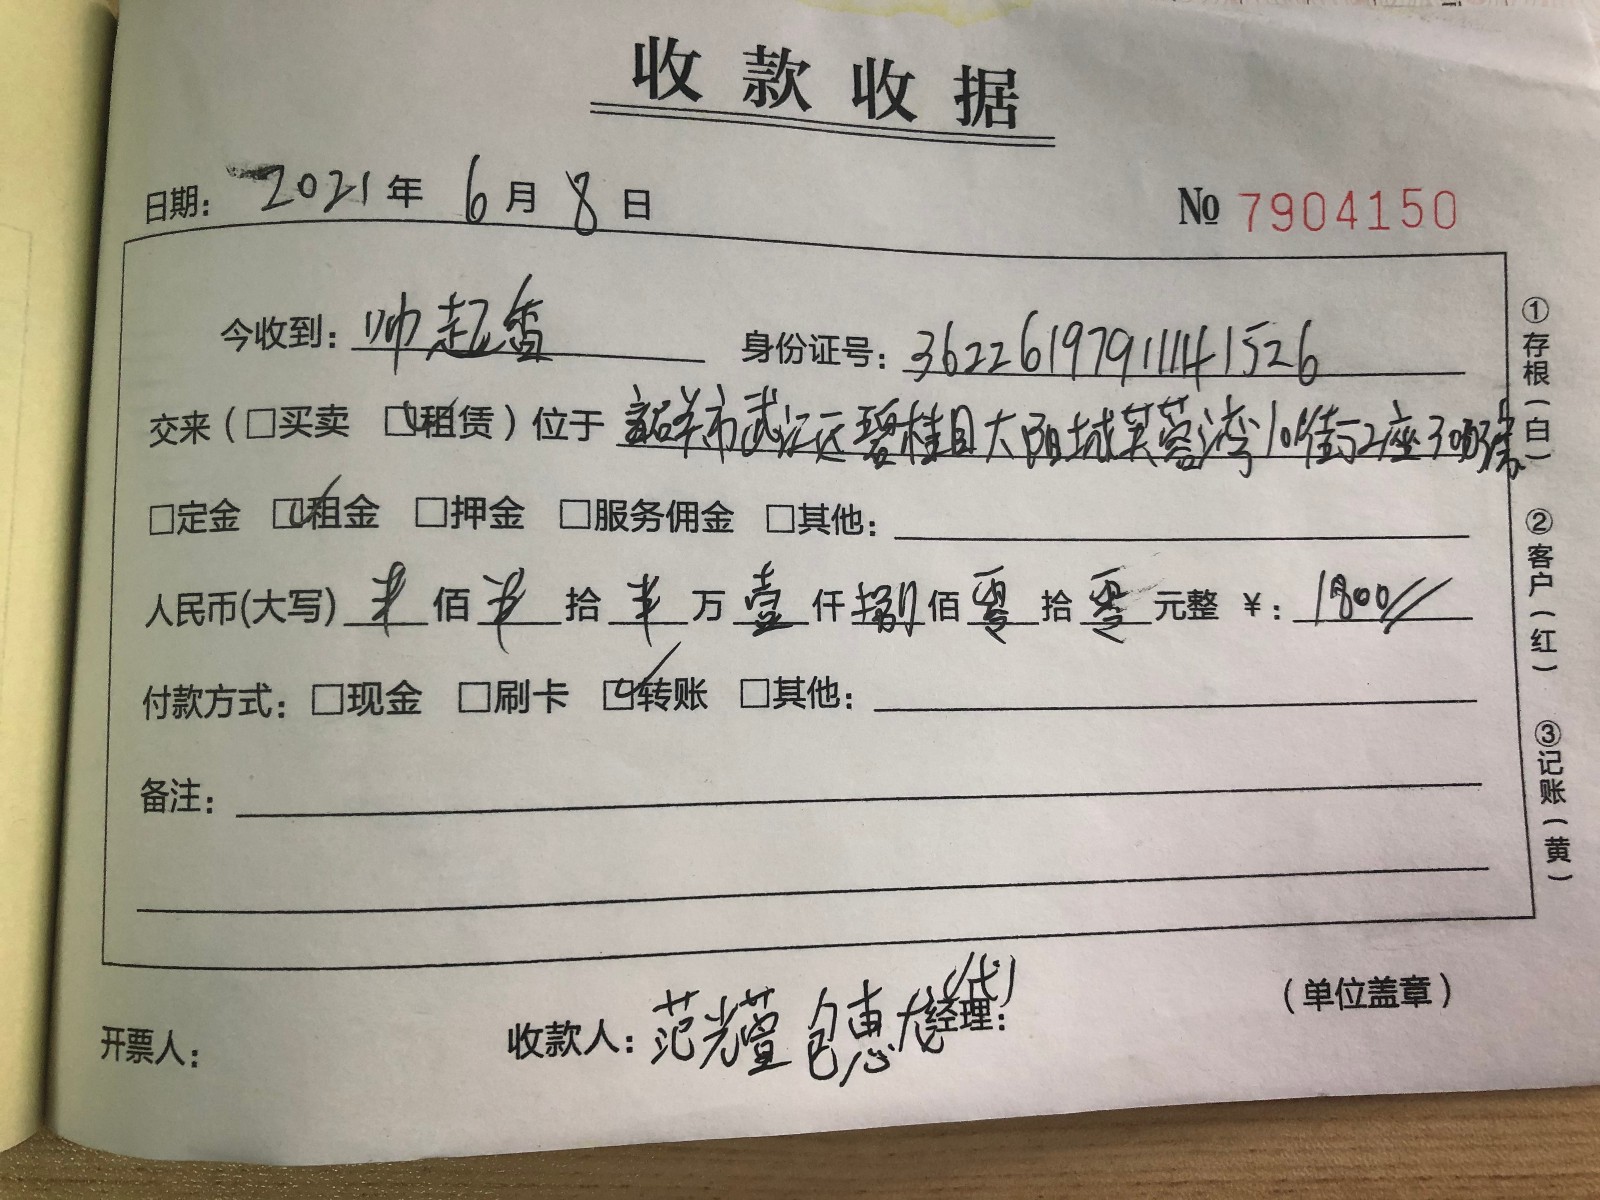 收款收据
日期: 2021年 6月 8日
No 7904150
今收到: 帅起香 身份证号: 362261979111141526
交来(□买卖 ☑租赁)位于 韶关市武江区碧桂园太阳城芙蓉湾10街2座
□定金 ☑租金 □押金 □服务佣金 □其他:
人民币(大写) 佰 拾 万 壹 仟 捌 佰 零 拾 零 元整 ¥: 1800
付款方式: □现金 □刷卡 ☑转账 □其他:
备注:
开票人: 收款人: 范光萱 包惠龙(代) 经理: (单位盖章)
①存根(白) ②客户(红) ③记账(黄)